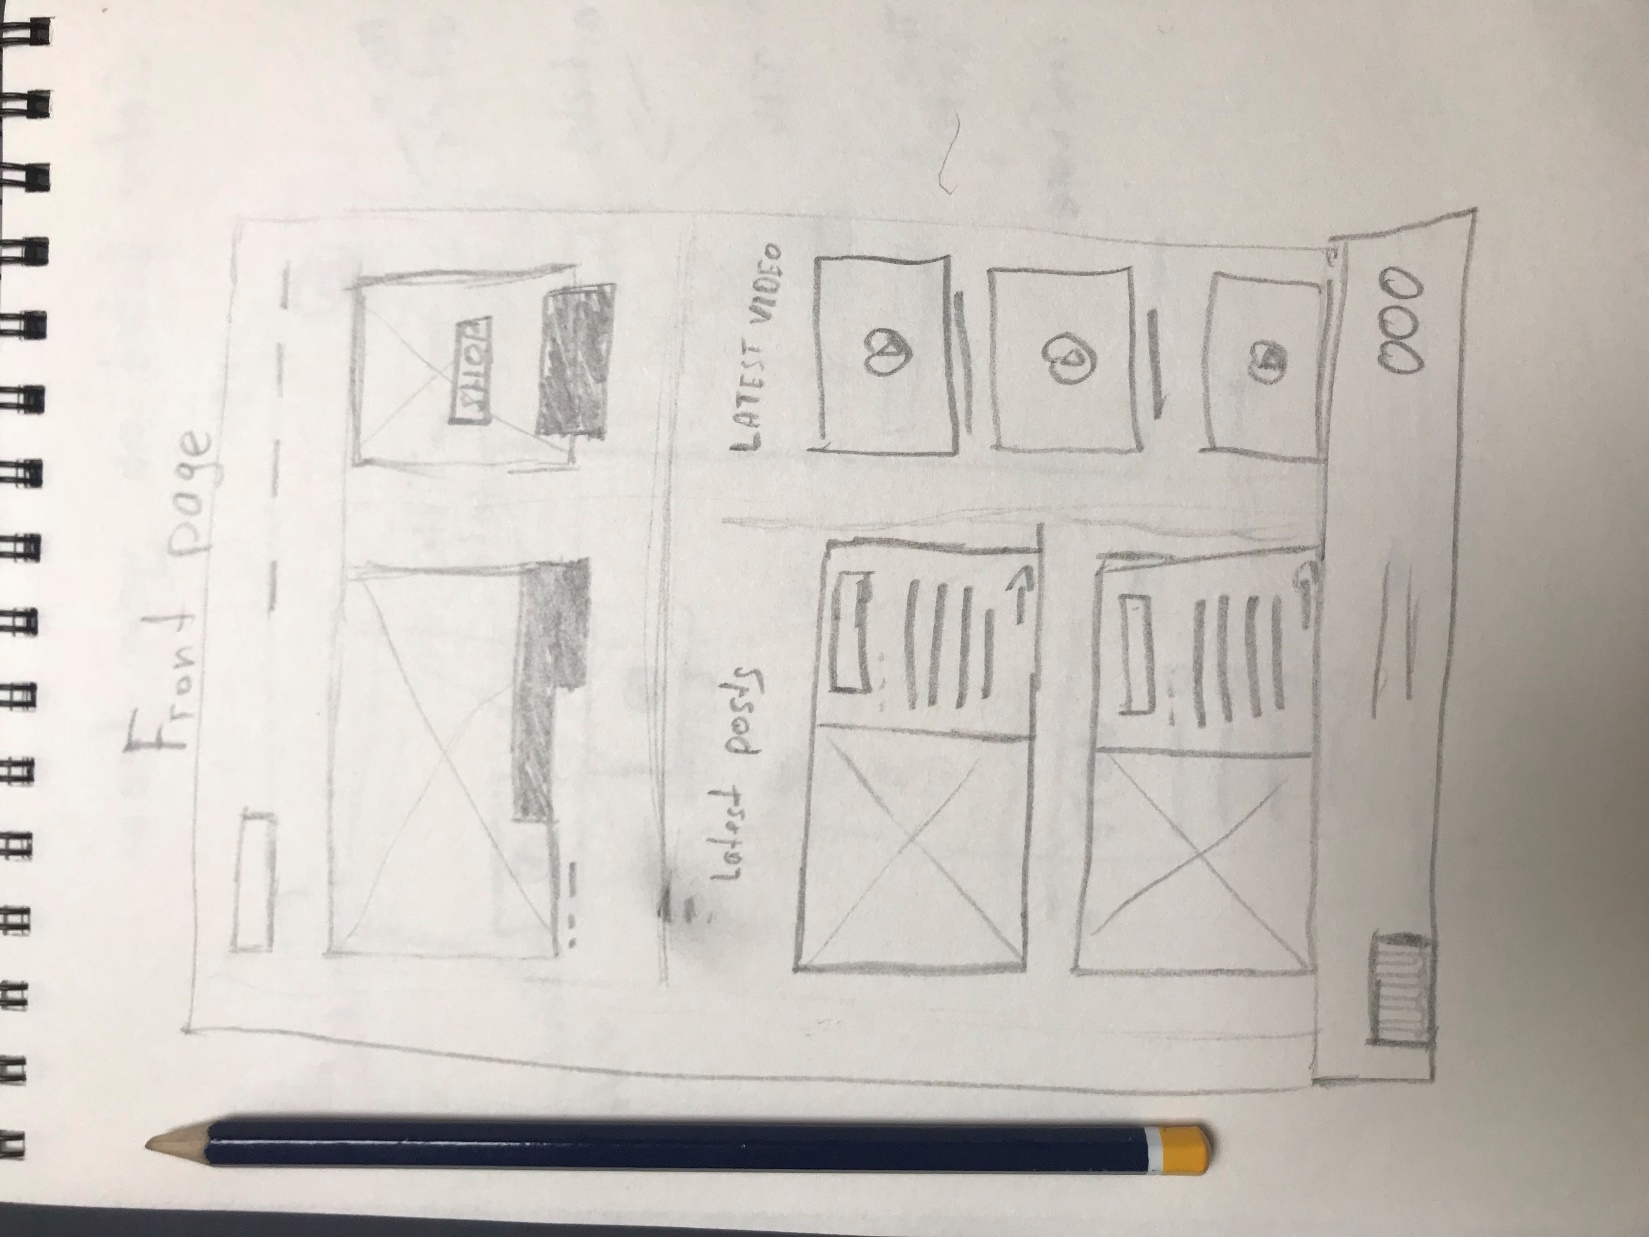 Front page
SHOP
Latest posts
LATEST VIDEO